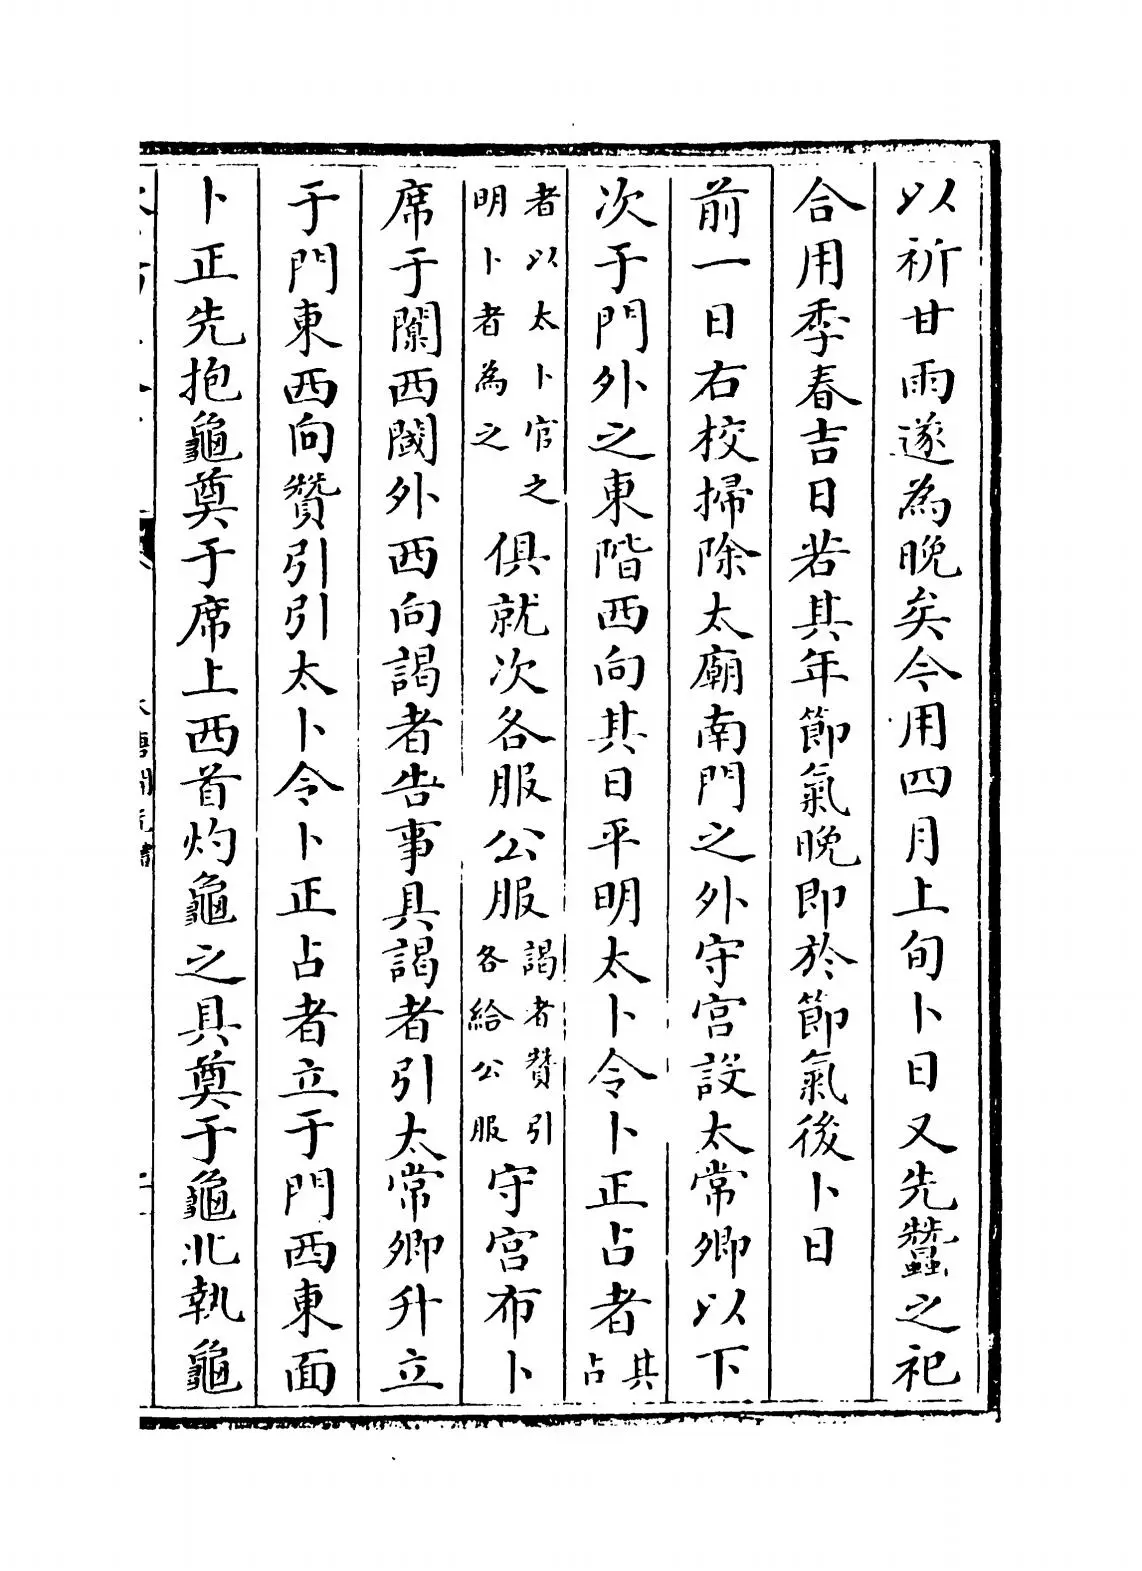 以祈甘雨遂為晚矣今用四月上旬卜日又先蠶之祀
合用季春吉日若其年節氣晚即於節氣後卜日
前一日右校掃除太廟南門之外守宮設太常卿以下
次于門外之東階西向其日平明太卜令卜正占者其占
者以太卜官之明卜者為之俱就次各服公服謁者贊引各給公服守宮布卜
席于闑西閾外西向謁者告事具謁者引太常卿升立
于門東西向贊引引太卜令卜正占者立于門西東面
卜正先抱龜奠于席上西首灼龜之具奠于龜北執龜